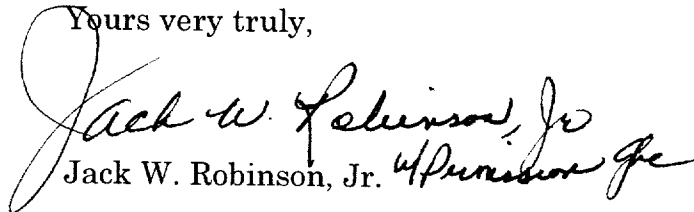 Yours very truly,
Jack W. Robinson, Jr
Jack W. Robinson, Jr. w/Permission